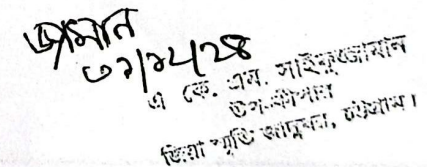 জামান
৩১/১২/২৪
এ কে. এম. সাইফুজ্জামান
উপ-কীপার
জিয়া স্মৃতি জাদুঘর, চট্টগ্রাম।